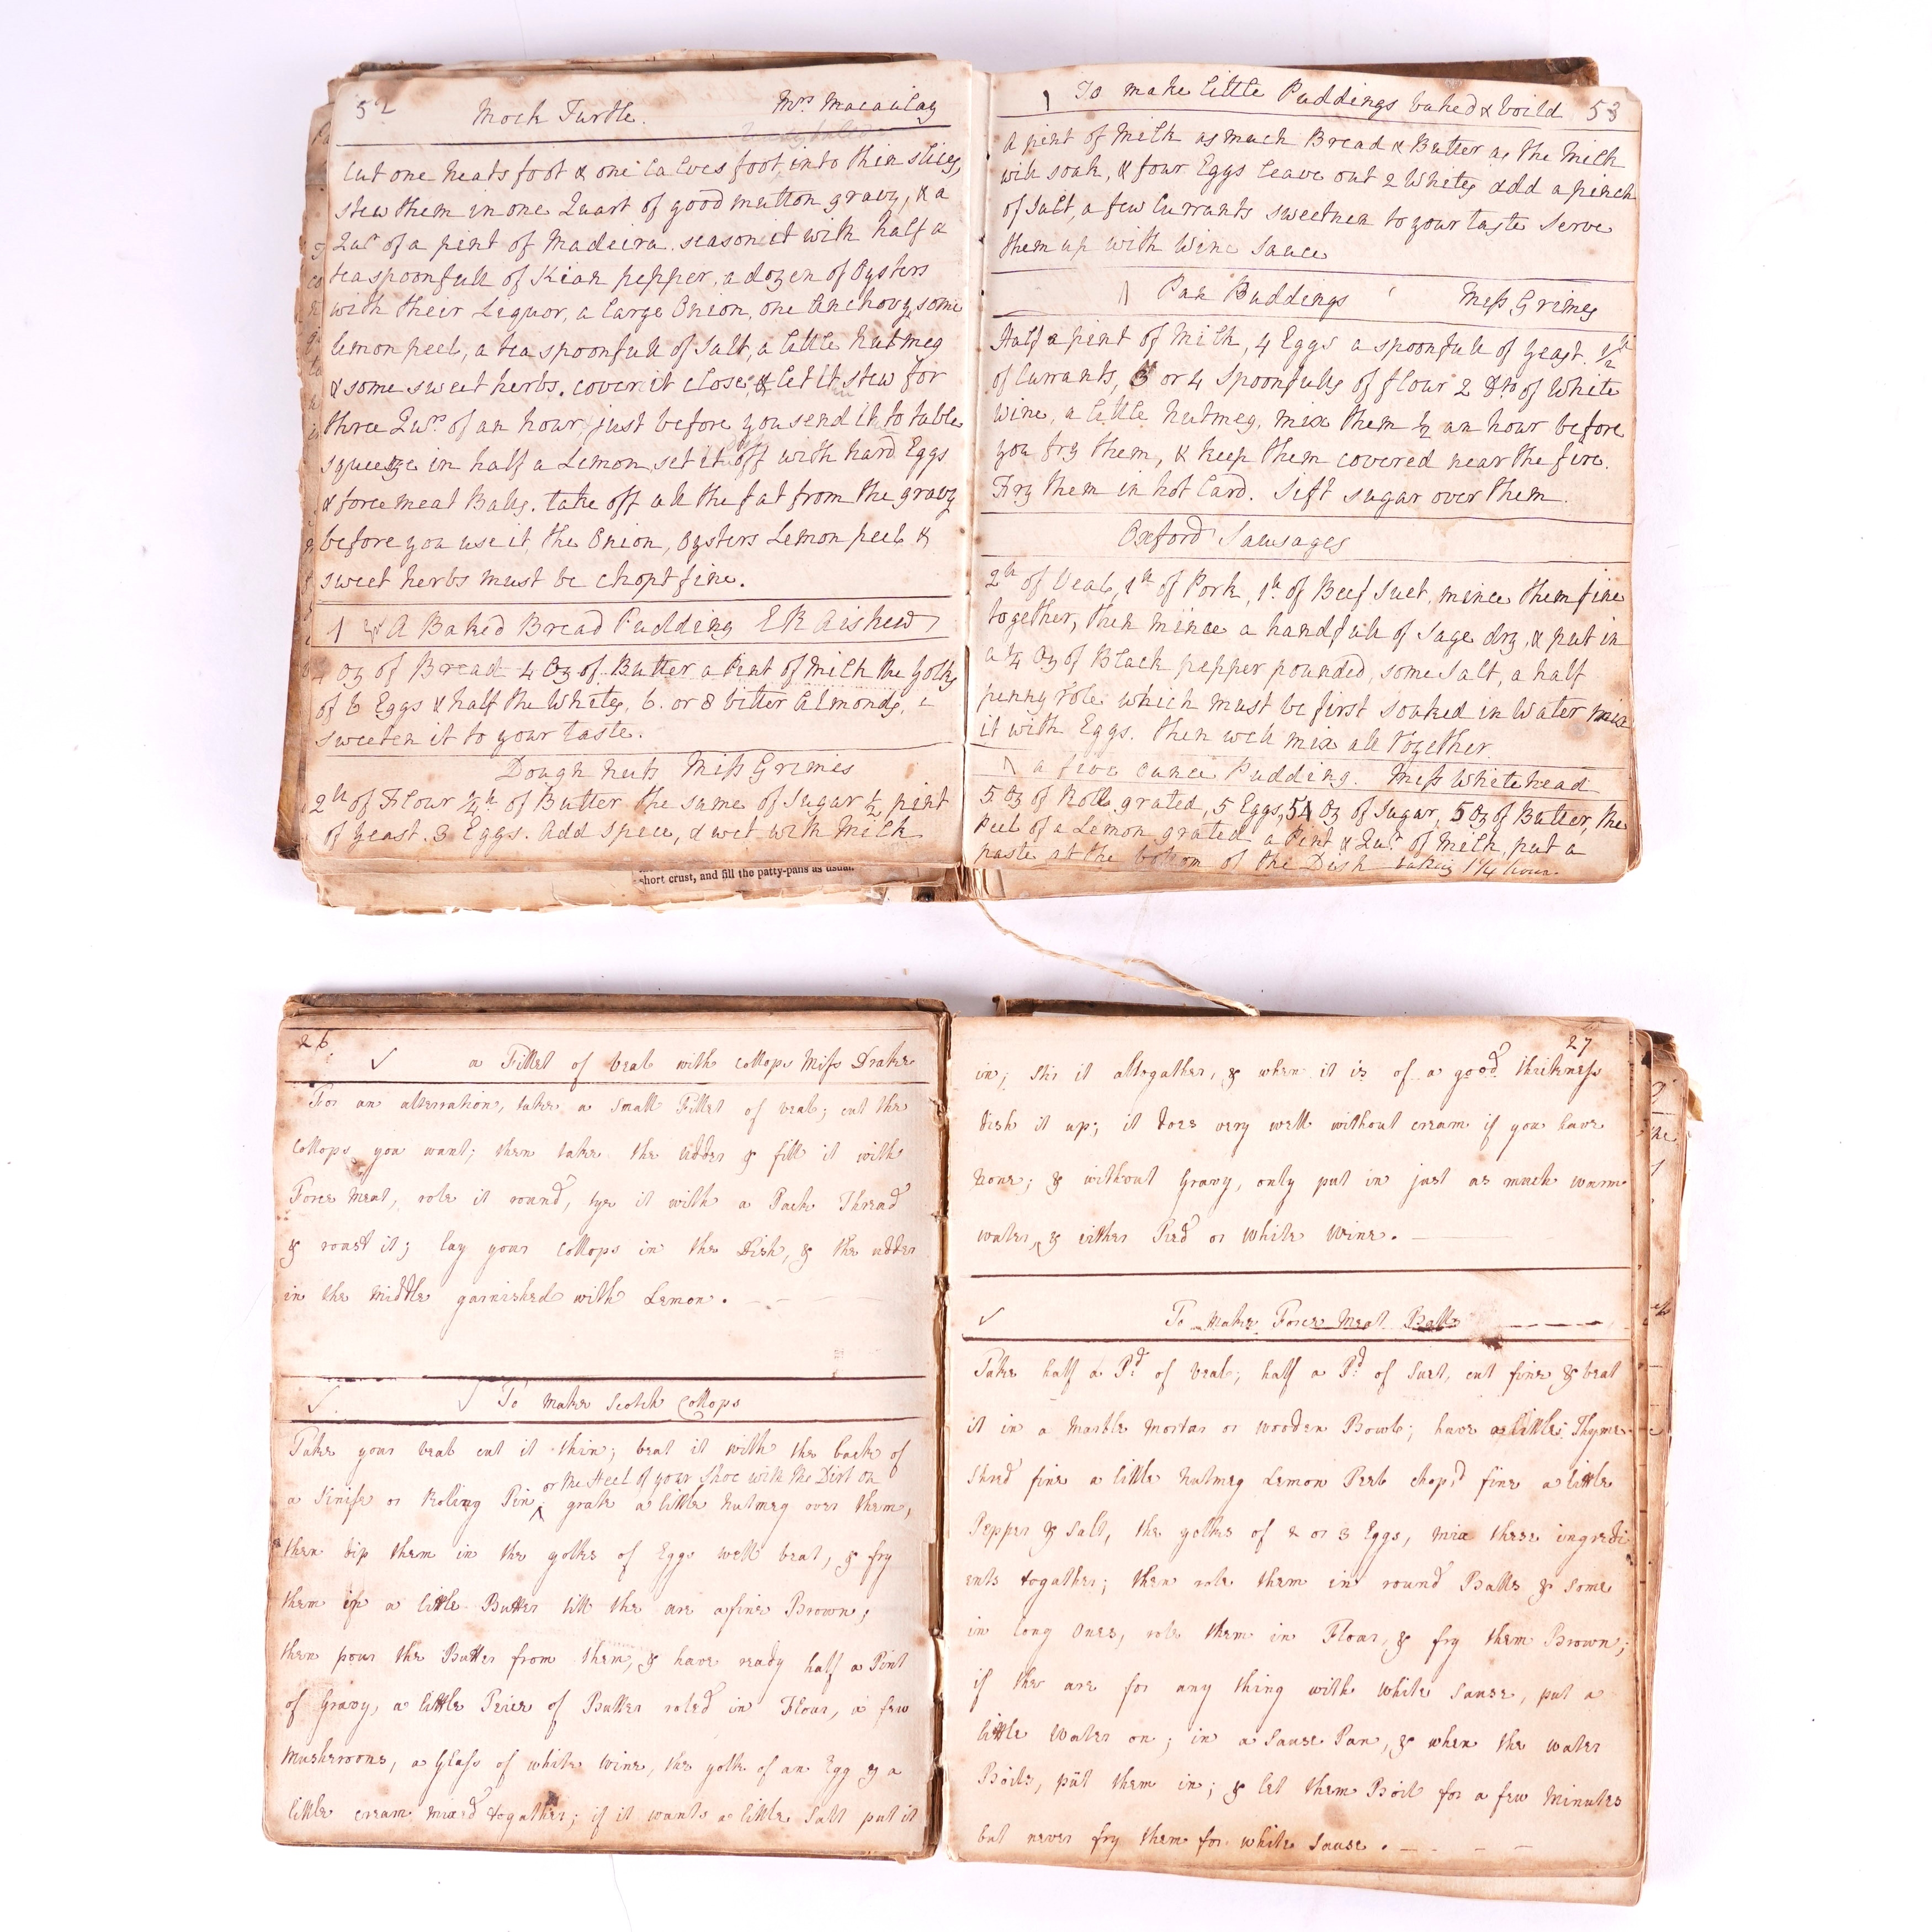 52 Mock Turtle. Mrs Macaulay
Cut one neats foot & one Calves foot, into thin slices,
stew them in one Quart of good mutton gravy, & a
Qur of a pint of Madeira. season it with half a
teaspoonfull of Kian pepper, a dozen of Oysters
with their Liquor, a large Onion, one Anchovy, some
lemon peel, a tea spoonfull of Salt, a little Nutmeg
& some sweet herbs. cover it close, & let it stew for
three Qurs of an hour, just before you send it to table
squeeze in half a Lemon, set it off with hard Eggs
& force meat Balls. take off all the fat from the gravy
before you use it, the Onion, Oysters Lemon peel &
sweet herbs must be chopt fine.
A Baked Bread Pudding E R Aishew
4 oz of Bread 4 Oz of Butter a Pint of Milk the Yolks
of 6 Eggs & half the Whites, 6. or 8 bitter Almonds,
sweeten it to your taste.
Dough nuts Miss Grimes
2 lb of Flour ¼ lb of Butter the same of Sugar ½ pint
of yeast. 3 Eggs. Add spice, & wet with Milk
short crust, and fill the patty-pans as usual.
1 To make little Puddings baked & boild 53
A pint of Milk as much Bread & Butter as the Milk
will soak, & four Eggs leave out 2 Whites add a pinch
of Salt, a few Currants sweeten to your taste Serve
them up with Wine Sauce
1 Pan Puddings Miss Grimes
Half a pint of Milk, 4 Eggs a spoonfull of yeast. ½ lb
of Currants, 3 or 4 Spoonfulls of flour 2 Do of White
Wine, a little Nutmeg, mix them ½ an hour before
you fry them, & keep them covered near the fire.
Fry them in hot Lard. Sift sugar over them.
Oxford Sausages
2 lb of Veal, 1 lb of Pork, 1 lb of Beef Suet, mince them fine
together, then mince a handfull of Sage dry, & put in
a ¼ Oz of Black pepper pounded, some Salt, a half
penny role which must be first soaked in Water mix
it with Eggs. then well mix all together
1 a five ounce Pudding. Miss Whitehead
5 Oz of Roll grated, 5 Eggs, 5 Oz of Sugar, 5 Oz of Butter, the
Peel of a Lemon grated a Pint & Qur of Milk, put a
paste at the bottom of the Dish baking 1¼ hour.
26
a Fillet of veal with Collops Miss Drake
For an alterration, take a small Fillet of veal; cut the
Collops you want; then take the udder & fill it with
Force Meat, role it round, tye it with a Pack Thread
& roast it; lay your Collops in the Dish, & the udder
in the Middle garnished with Lemon.
To make Scotch Collops
Take your veal cut it thin; beat it with the back of
or the Heel of your Shoe with the Dirt on
a Knife or Roling Pin ‸ grate a little Nutmeg over them,
then dip them in the yolks of Eggs well beat, & fry
them in a little Butter till the are a fine Brown,
then pour the Butter from them, & have ready half a Pint
of Gravy, a little Peice of Butter roled in Flour, a few
Musheroons, a Glass of white Wine, the yolk of an Egg & a
little cream mixed togather; if it wants a little Salt put it
27
in; stir it altogather, & when it is of a good thickness
dish it up; it does very well without cream if you have
none; & without Gravy, only put in just as much warm
water, & either Red or white Wine.
To make Force Meat Balls
Take half a Pd of veal; half a Pd of Suet, cut fine & beat
it in a Marble Mortar or wooden Bowl; have a little Thyme
shred fine a little Nutmeg Lemon Peel chop'd fine a little
Pepper & Salt, the yolks of 2 or 3 Eggs, mix these ingredi
ents togather; then role them in round Balls & some
in long ones, role them in Flour, & fry them Brown;
if the are for any thing with white sause, put a
little Water on; in a Sause Pan, & when the water
Boils, put them in; & let them Boil for a few Minutes
but never fry them for white sause.